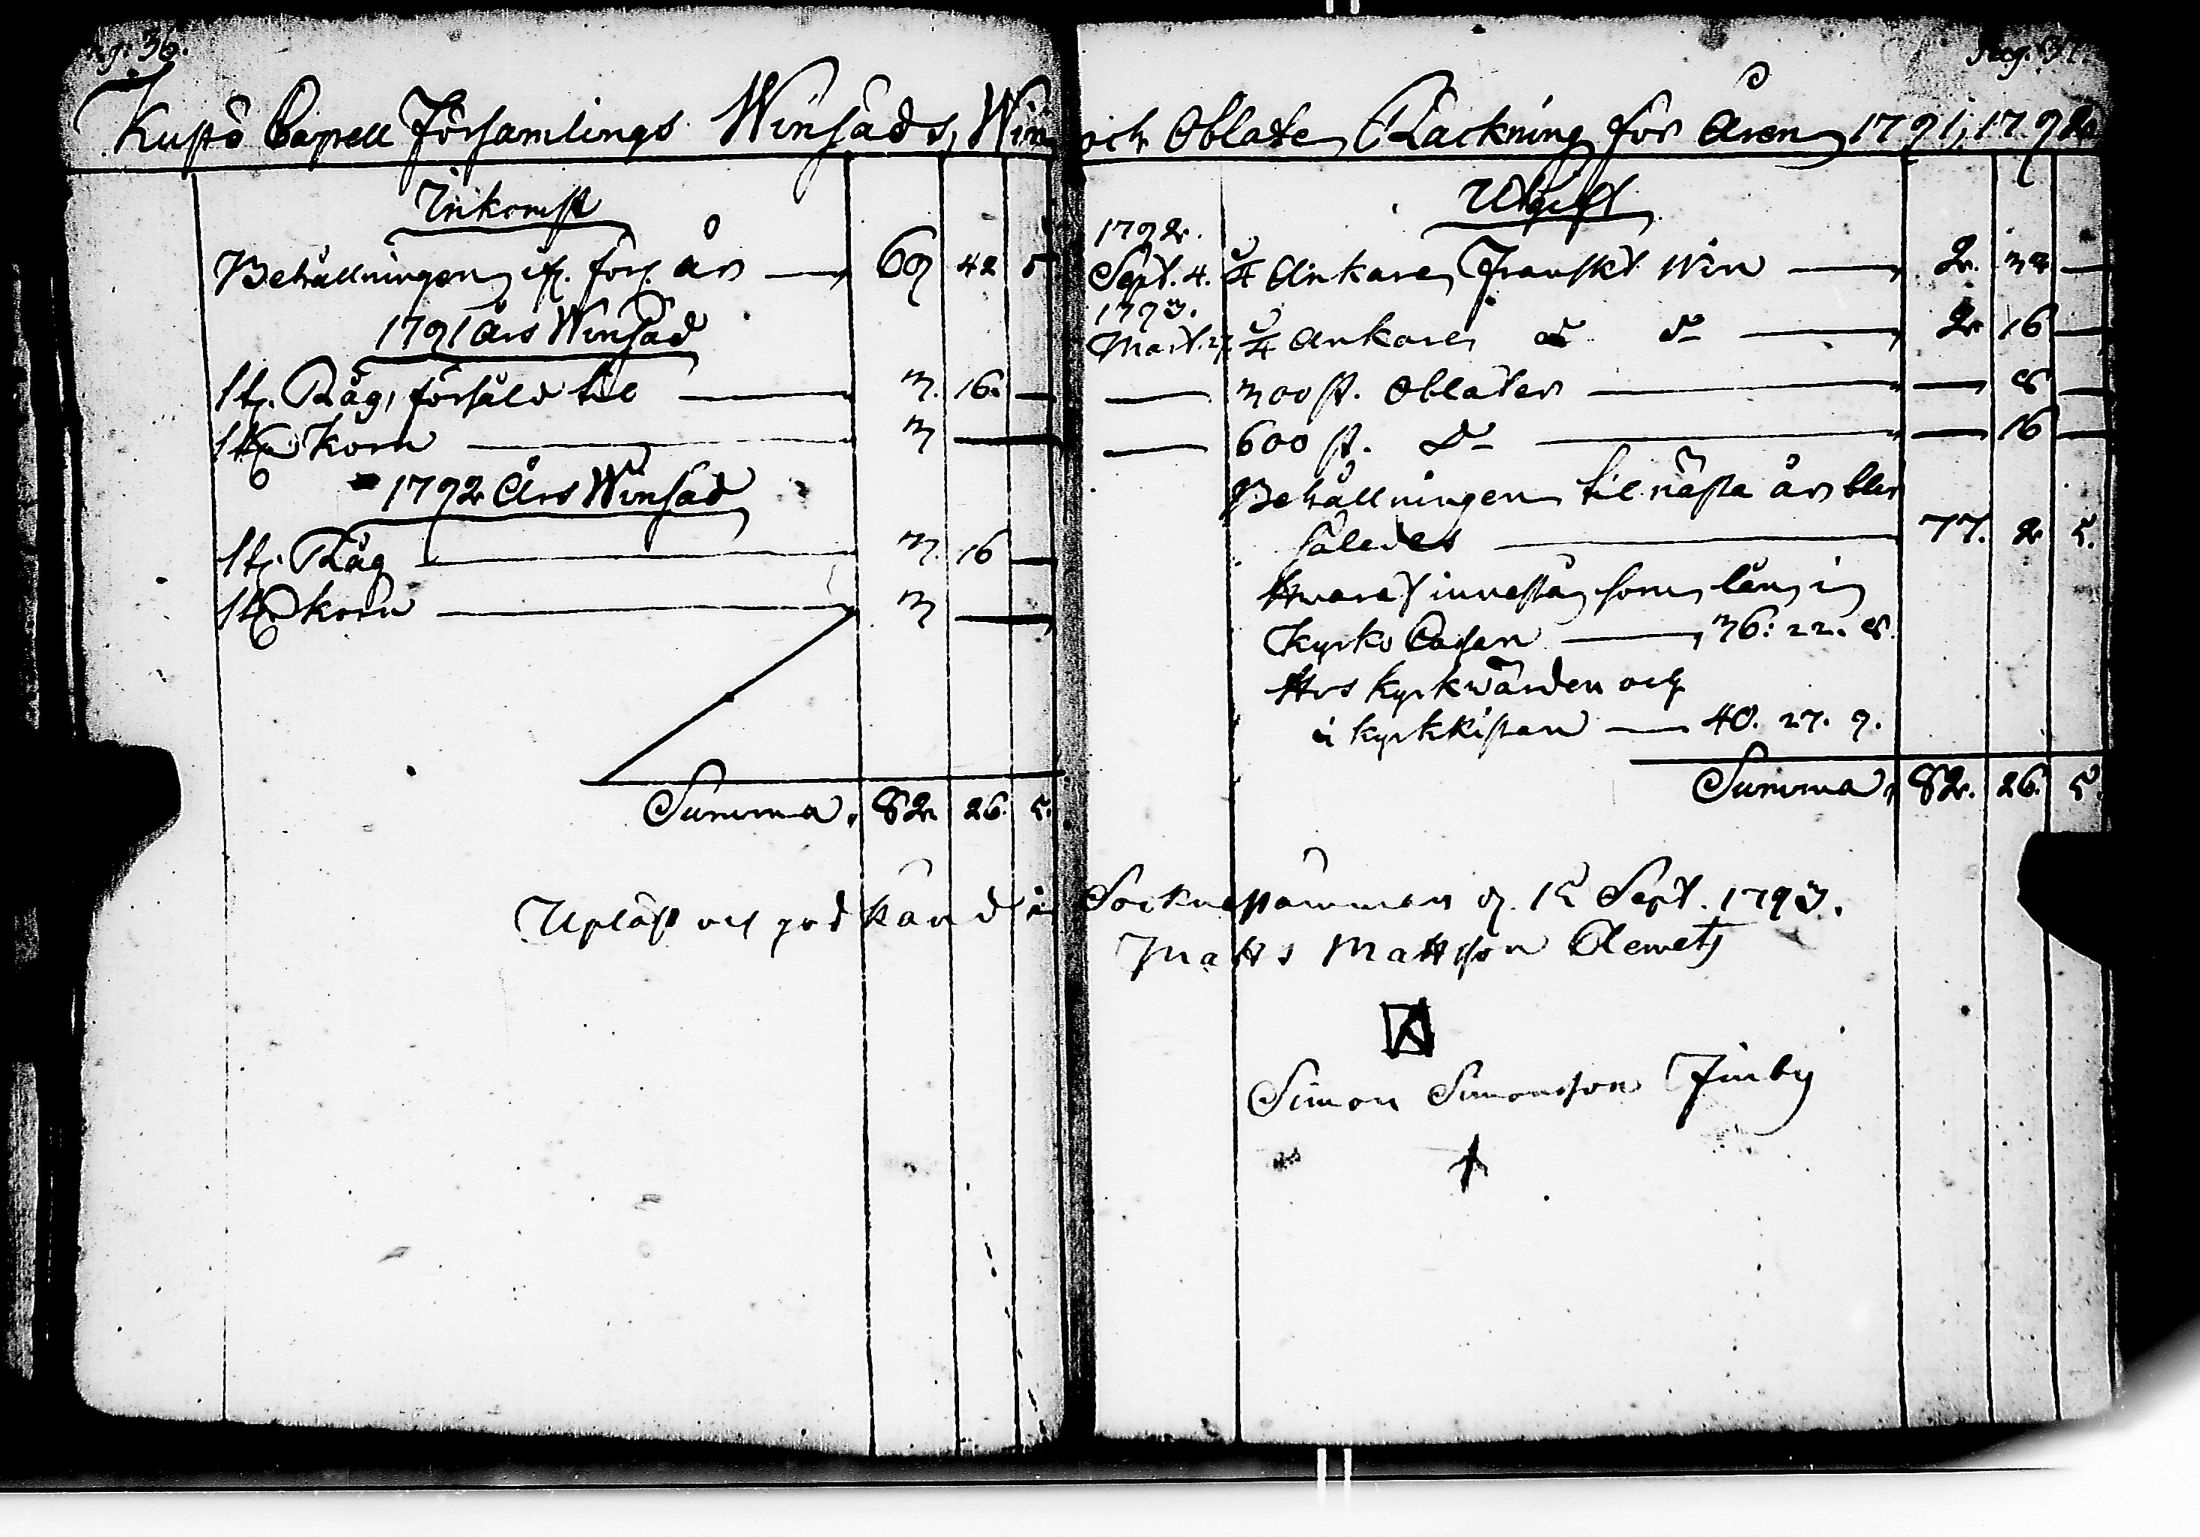 Pag. 36.
Kustö Capell Församlings Winsäds, Win
Inkomst
Behållningen ifr. förf. år — 69 42 5
1791 års Winsäd
1 t. Råg, försåld til — 3. 16. —
1 t. Korn — 3 —
1792 Års Winsäd
1 t. Råg — 3. 16 —
1 t. Korn — 3 —
Summa, 82. 26. 5.
Upläst och godkänd i
Pag. 37.
och Oblate Räckning för Åren 1791, 1792
Utgift
1792.
Sept. 4. 3/4 Ankare Franskt Win — 2. 32 —
1793.
Mart. 27. 3/4 Ankare d:o d:o — 2 16 —
— 300 st. Oblater — — 8 —
— 600 st. D:o — — 16 —
Behållningen til nästa år blir
således — 77. 2 5.
Hvaraf innestå som lån i
Kyrko Cassan — 36: 22. 8.
Hos Kyrkvärden och
i kyrkkistan — 40. 27. 9.
Summa, 82. 26. 5.
Socknestämman d. 15 Sept. 1793.
Matts Mattsson Clemets
Simon Simonsson Finby